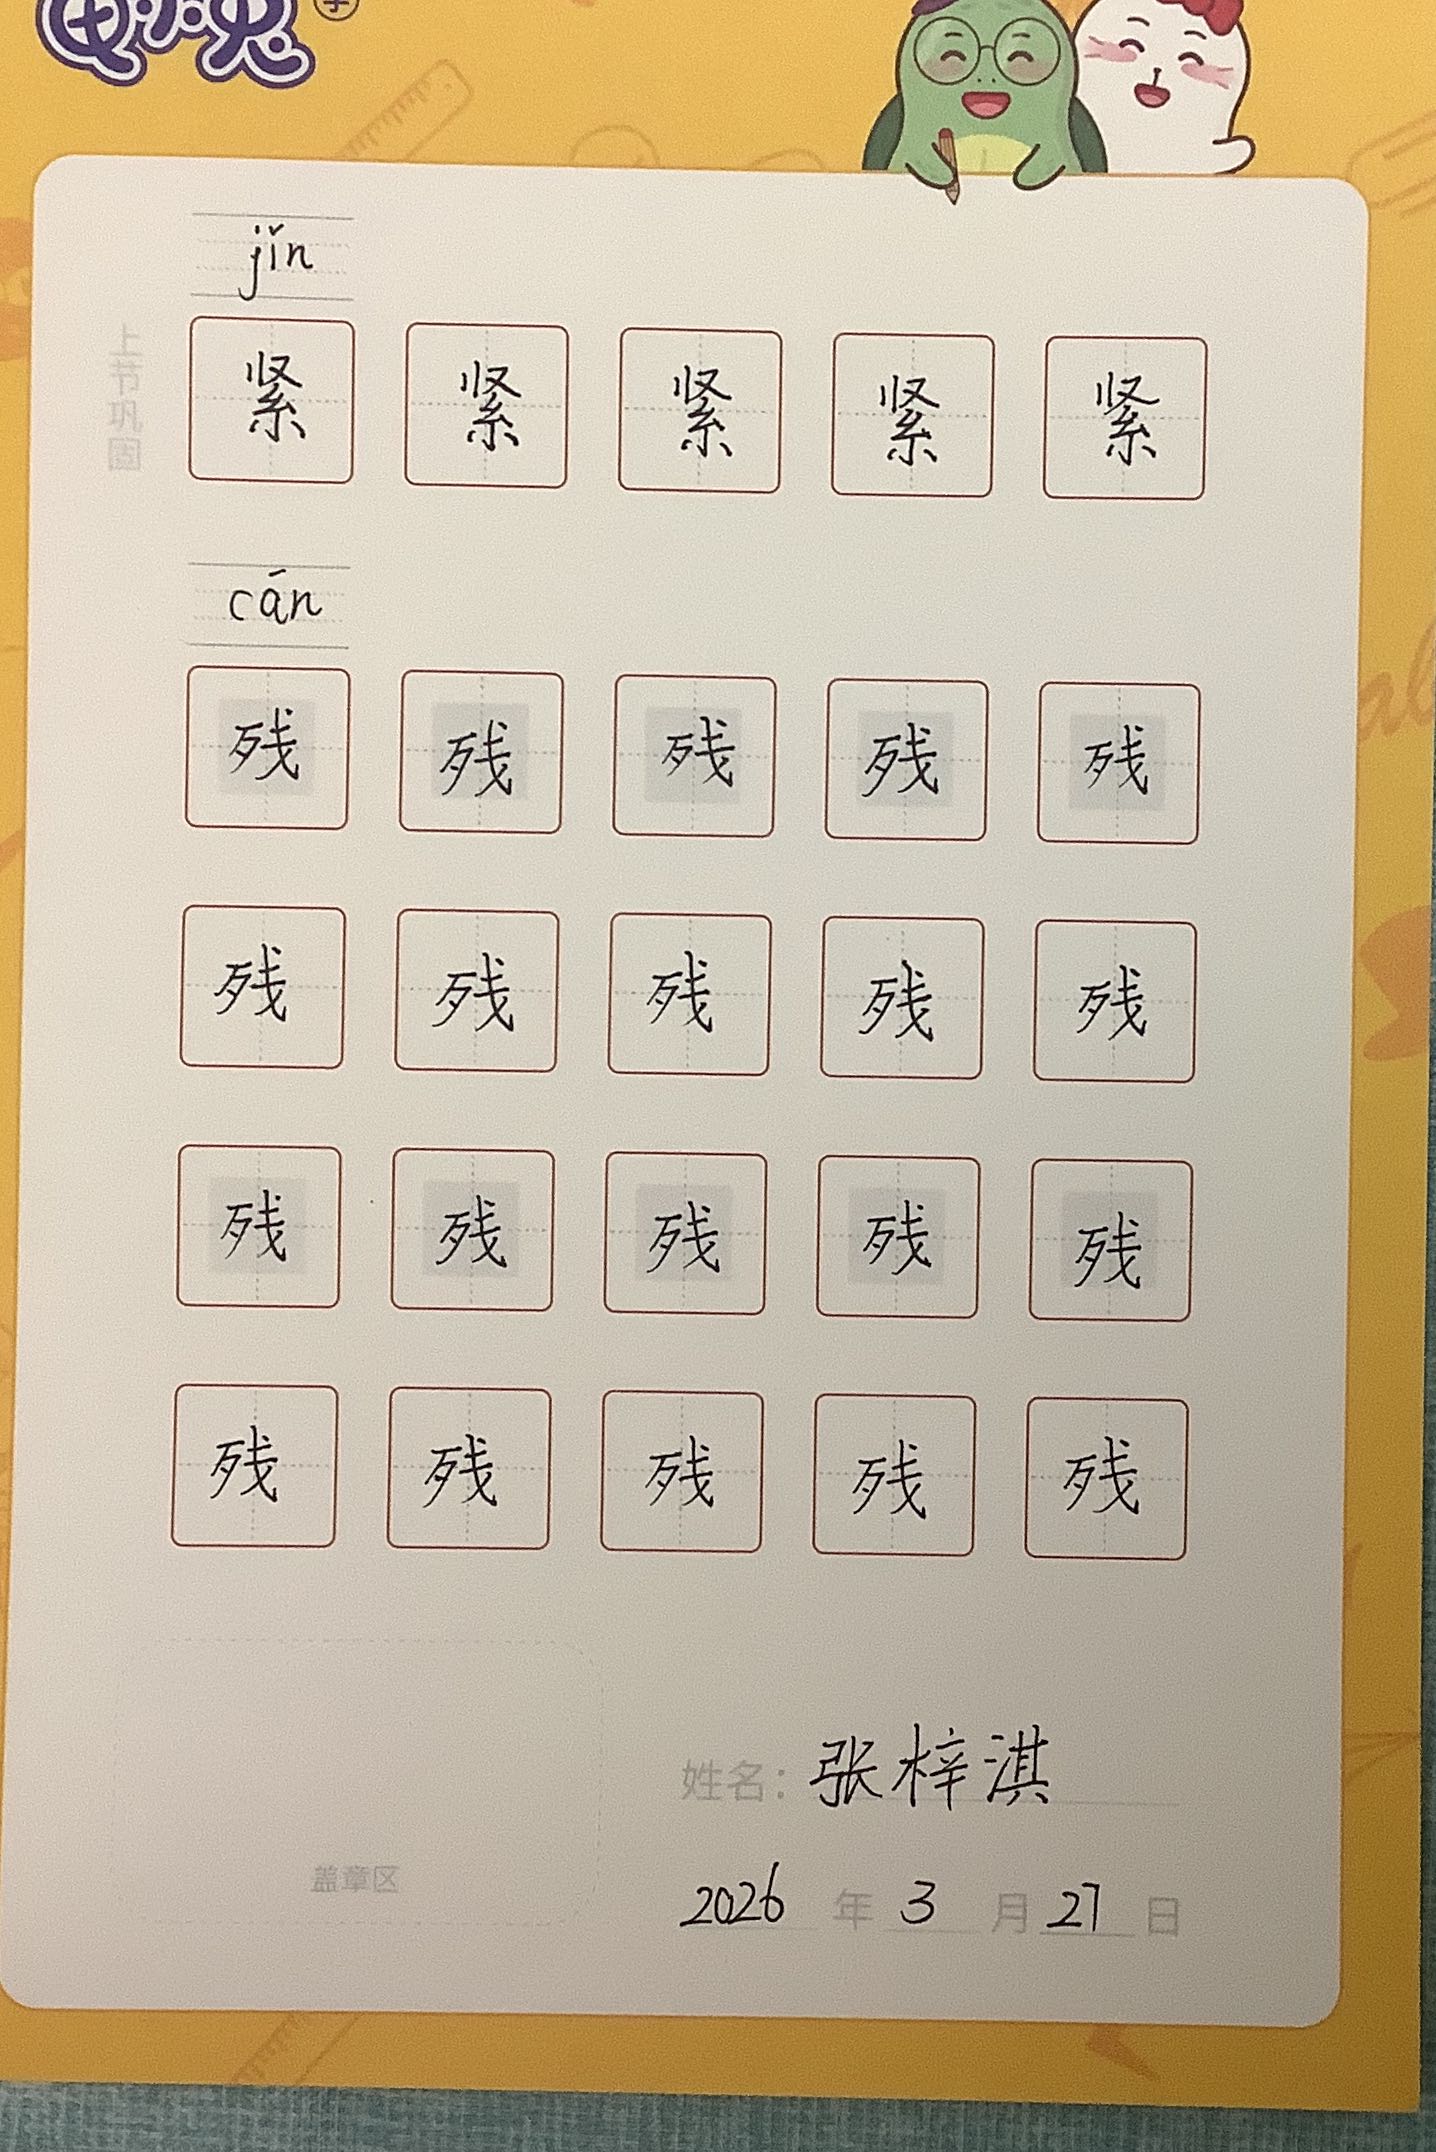 jǐn
上节巩固
紧 紧 紧 紧 紧
cán
残 残 残 残 残
残 残 残 残 残
残 残 残 残 残
残 残 残 残 残
姓名：张梓淇
盖章区
2026 年 3 月 27 日